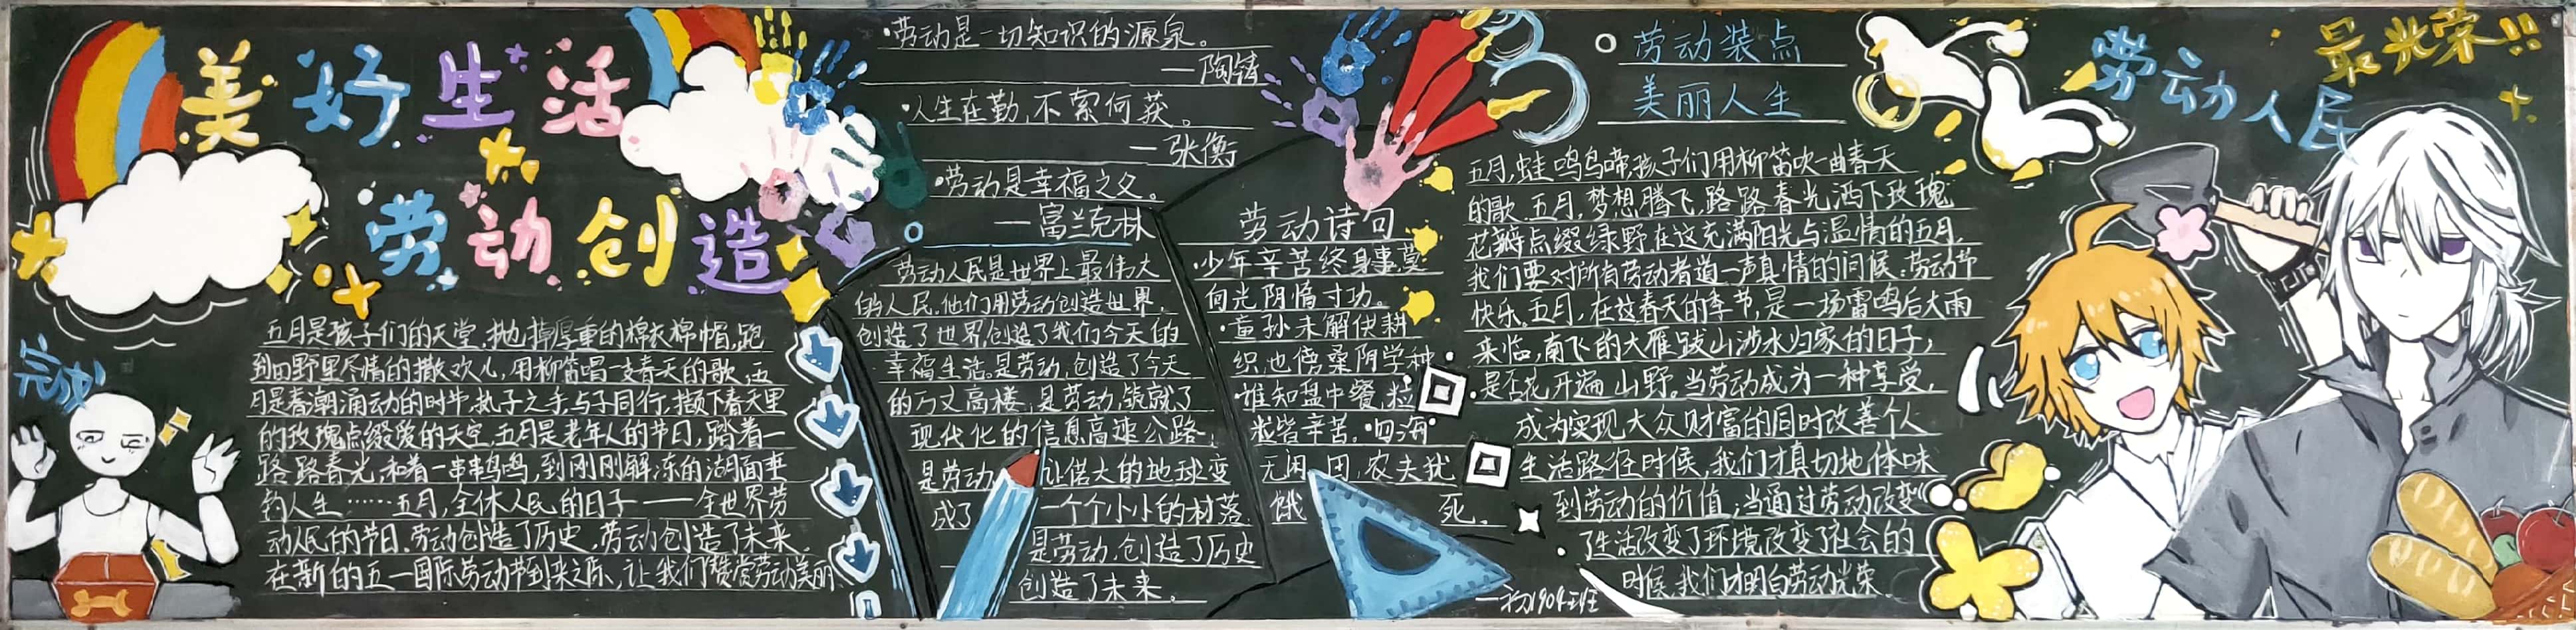 美好生活
劳动创造
完成!
五月是孩子们的天堂,抛掉厚重的棉衣棉帽,跑
到田野里尽情的撒欢儿,用柳笛唱一支春天的歌,五
月是春潮涌动的时节,执子之手,与子同行,撷下春天里
的玫瑰点缀爱的天空,五月是老年人的节日,踏着一
路路春光,和着一串串鸟鸣,到刚刚解冻的湖面垂
钓人生……五月,全体人民的日子——全世界劳
动人民的节日.劳动创造了历史,劳动创造了未来.
在新的五一国际劳动节到来之际,让我们赞赏劳动美丽
·劳动是一切知识的源泉。
—陶铸
·人生在勤,不索何获。
—张衡
·劳动是幸福之父。
—富兰克林
劳动人民是世界上最伟大
的人民.他们用劳动创造世界,
创造了世界,创造了我们今天的
幸福生活.是劳动,创造了今天
的万丈高楼,是劳动,筑就了
现代化的信息高速公路,
是劳动,让偌大的地球变
成了一个个小小的村落
是劳动,创造了历史
创造了未来。
劳动诗句
·少年辛苦终身事,莫
向光阴惰寸功。
·童孙未解供耕
织,也傍桑阴学种
·谁知盘中餐,粒
粒皆辛苦。·四海
无闲田,农夫犹
饿死。
劳动装点
美丽人生
五月,蛙鸣鸟啼,孩子们用柳笛吹一曲春天
的歌.五月,梦想腾飞,路路春光洒下玫瑰
花瓣点缀绿野.在这充满阳光与温情的五月,
我们要对所有劳动者道一声真情的问候:劳动节
快乐.五月,在这春天的季节,是一场雷鸣后大雨
来临,南飞的大雁跋山涉水归家的日子,
是否花开遍山野.当劳动成为一种享受,
成为实现大众财富的同时改善个人
生活路径时候,我们才真切地体味
到劳动的价值,当通过劳动改变
了生活改变了环境改变了社会的
时候,我们才明白劳动光荣.
—初1904班
劳动人民
最光荣!!